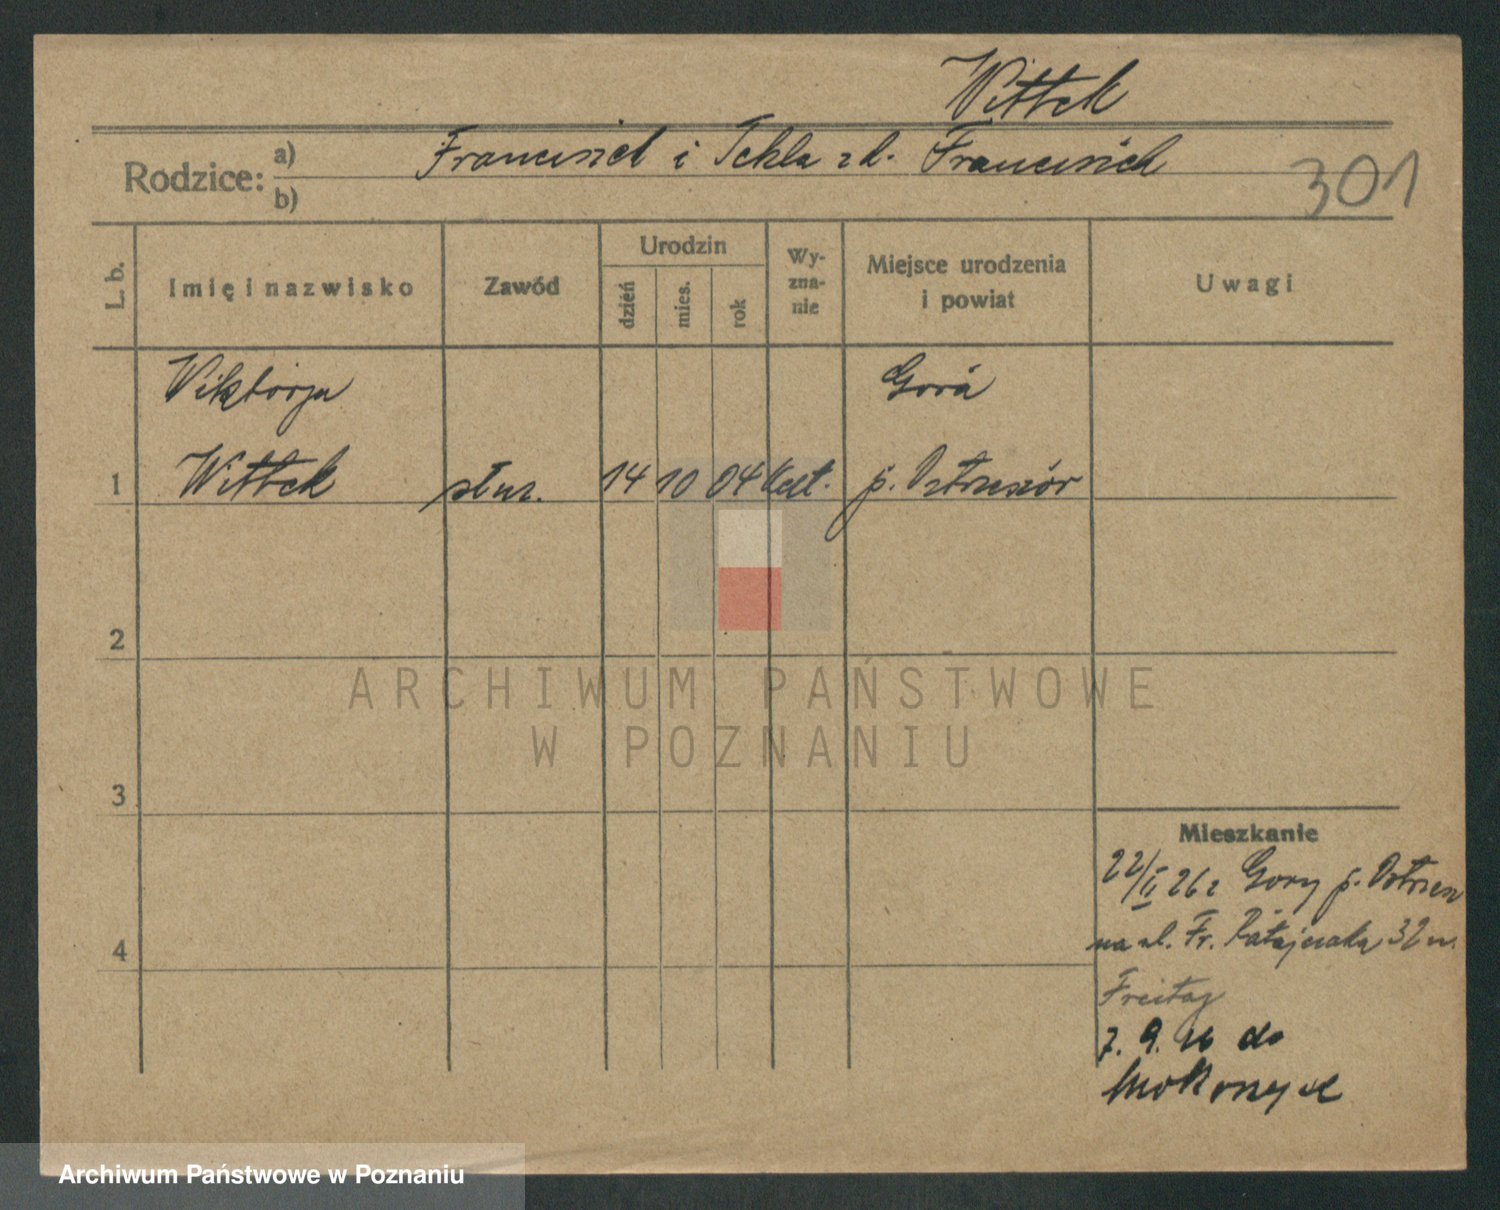 Wittek
Rodzice: a) Franciszek i Tekla zd. Franciszek
b)
301
L. b.
Imię i nazwisko
Zawód
Urodzin
dzień
mies.
rok
Wy-
zna-
nie
Miejsce urodzenia
i powiat
Uwagi
Wiktorja
Gorá
1 Wittek służ. 14 10 04 kat. p. Ostrzeszów
2
3
4
ARCHIWUM PAŃSTWOWE
W POZNANIU
Mieszkanie
22/II 26 z Gory p. Ostrzesz
na ul. Fr. Ratajczaka 32 u.
Freitag
7. 9. 26 do
Archiwum Państwowe w Poznaniu